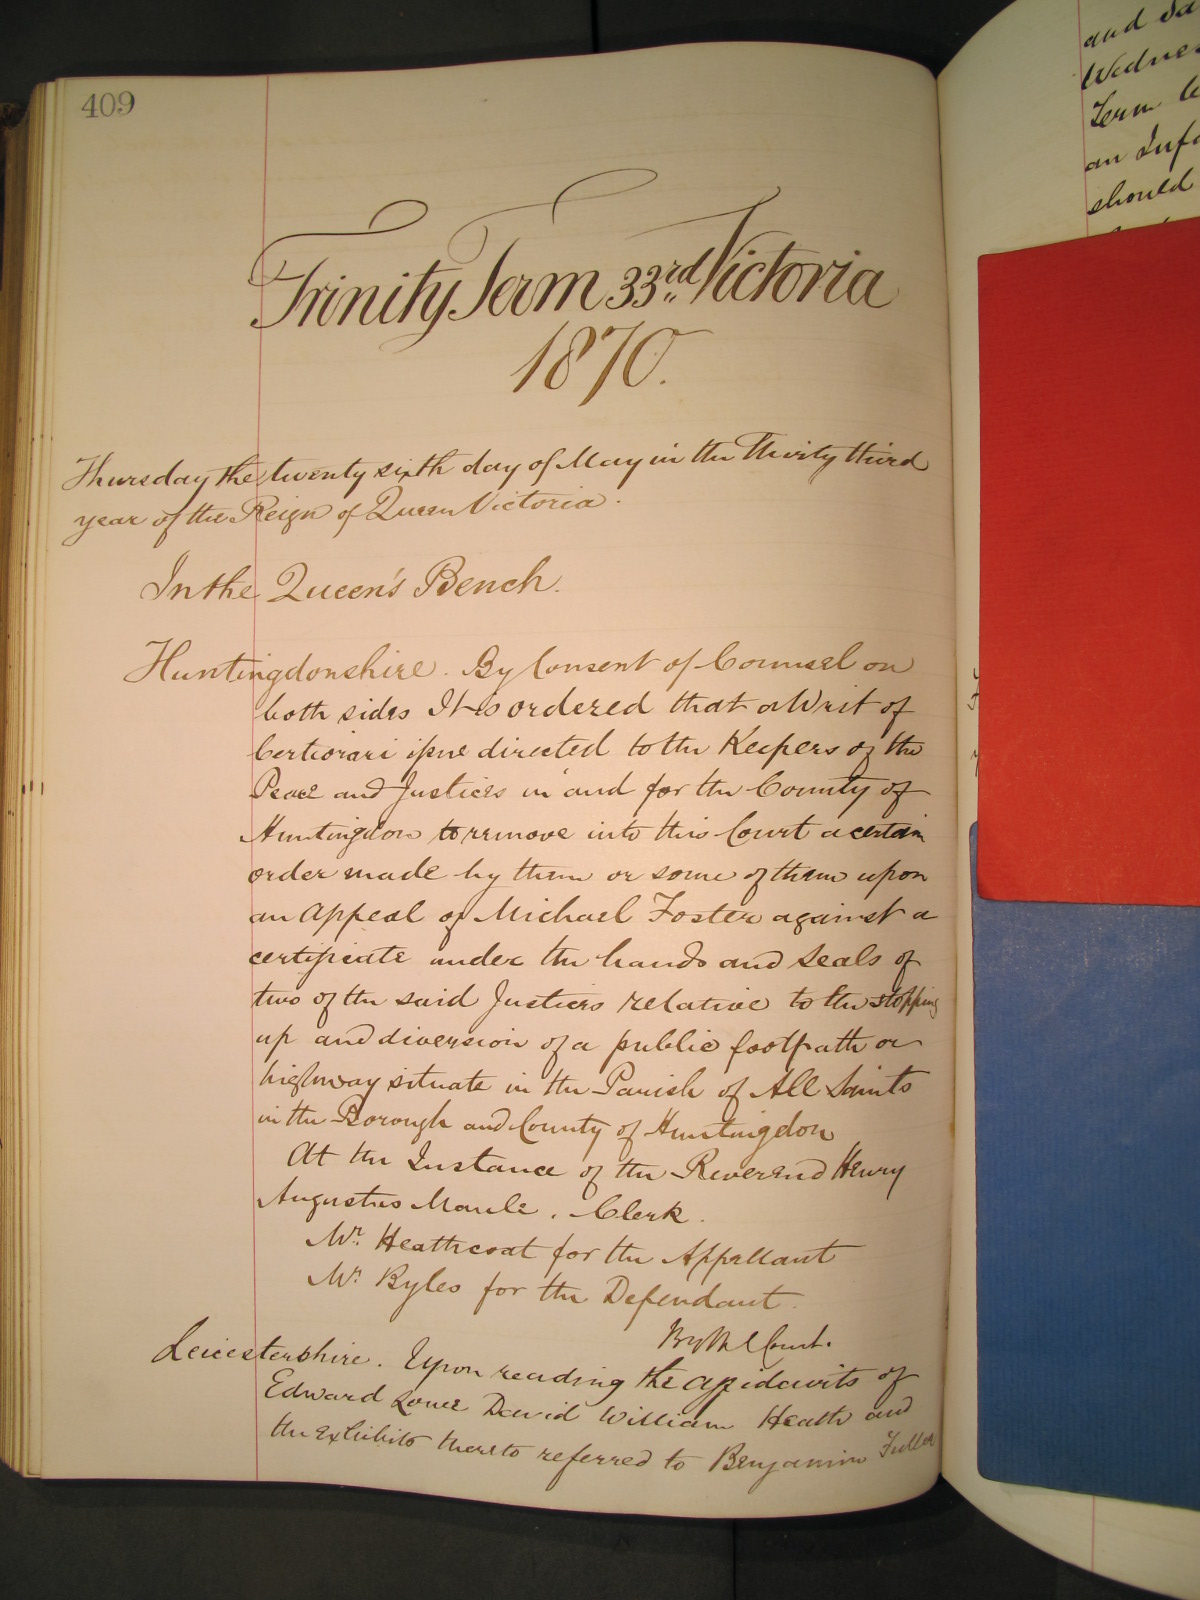 409
Trinity Term 33rd Victoria
1870.
Thursday the twenty sixth day of May in the Thirty third
year of the Reign of Queen Victoria.
In the Queen's Bench.
Huntingdonshire. By Consent of Counsel on
both sides It is ordered that a Writ of
Certiorari issue directed to the Keepers of the
Peace and Justices in and for the County of
Huntingdon to remove into this Court a certain
order made by them or some of them upon
an Appeal of Michael Foster against a
certificate under the hands and Seals of
two of the said Justices relative to the stopping
up and diversion of a public footpath or
highway situate in the Parish of All Saints
in the Borough and County of Huntingdon
At the Instance of the Reverend Henry
Augustus Maule. Clerk.
Mr. Heathcoat for the Appellant
Mr. Byles for the Defendant.
By the Court.
Leicestershire. Upon reading the affidavits of
Edward Lowe David William Heath and
the Exhibits thereto referred to Benjamin Fuller
and
Wednes
Term
an Info
should